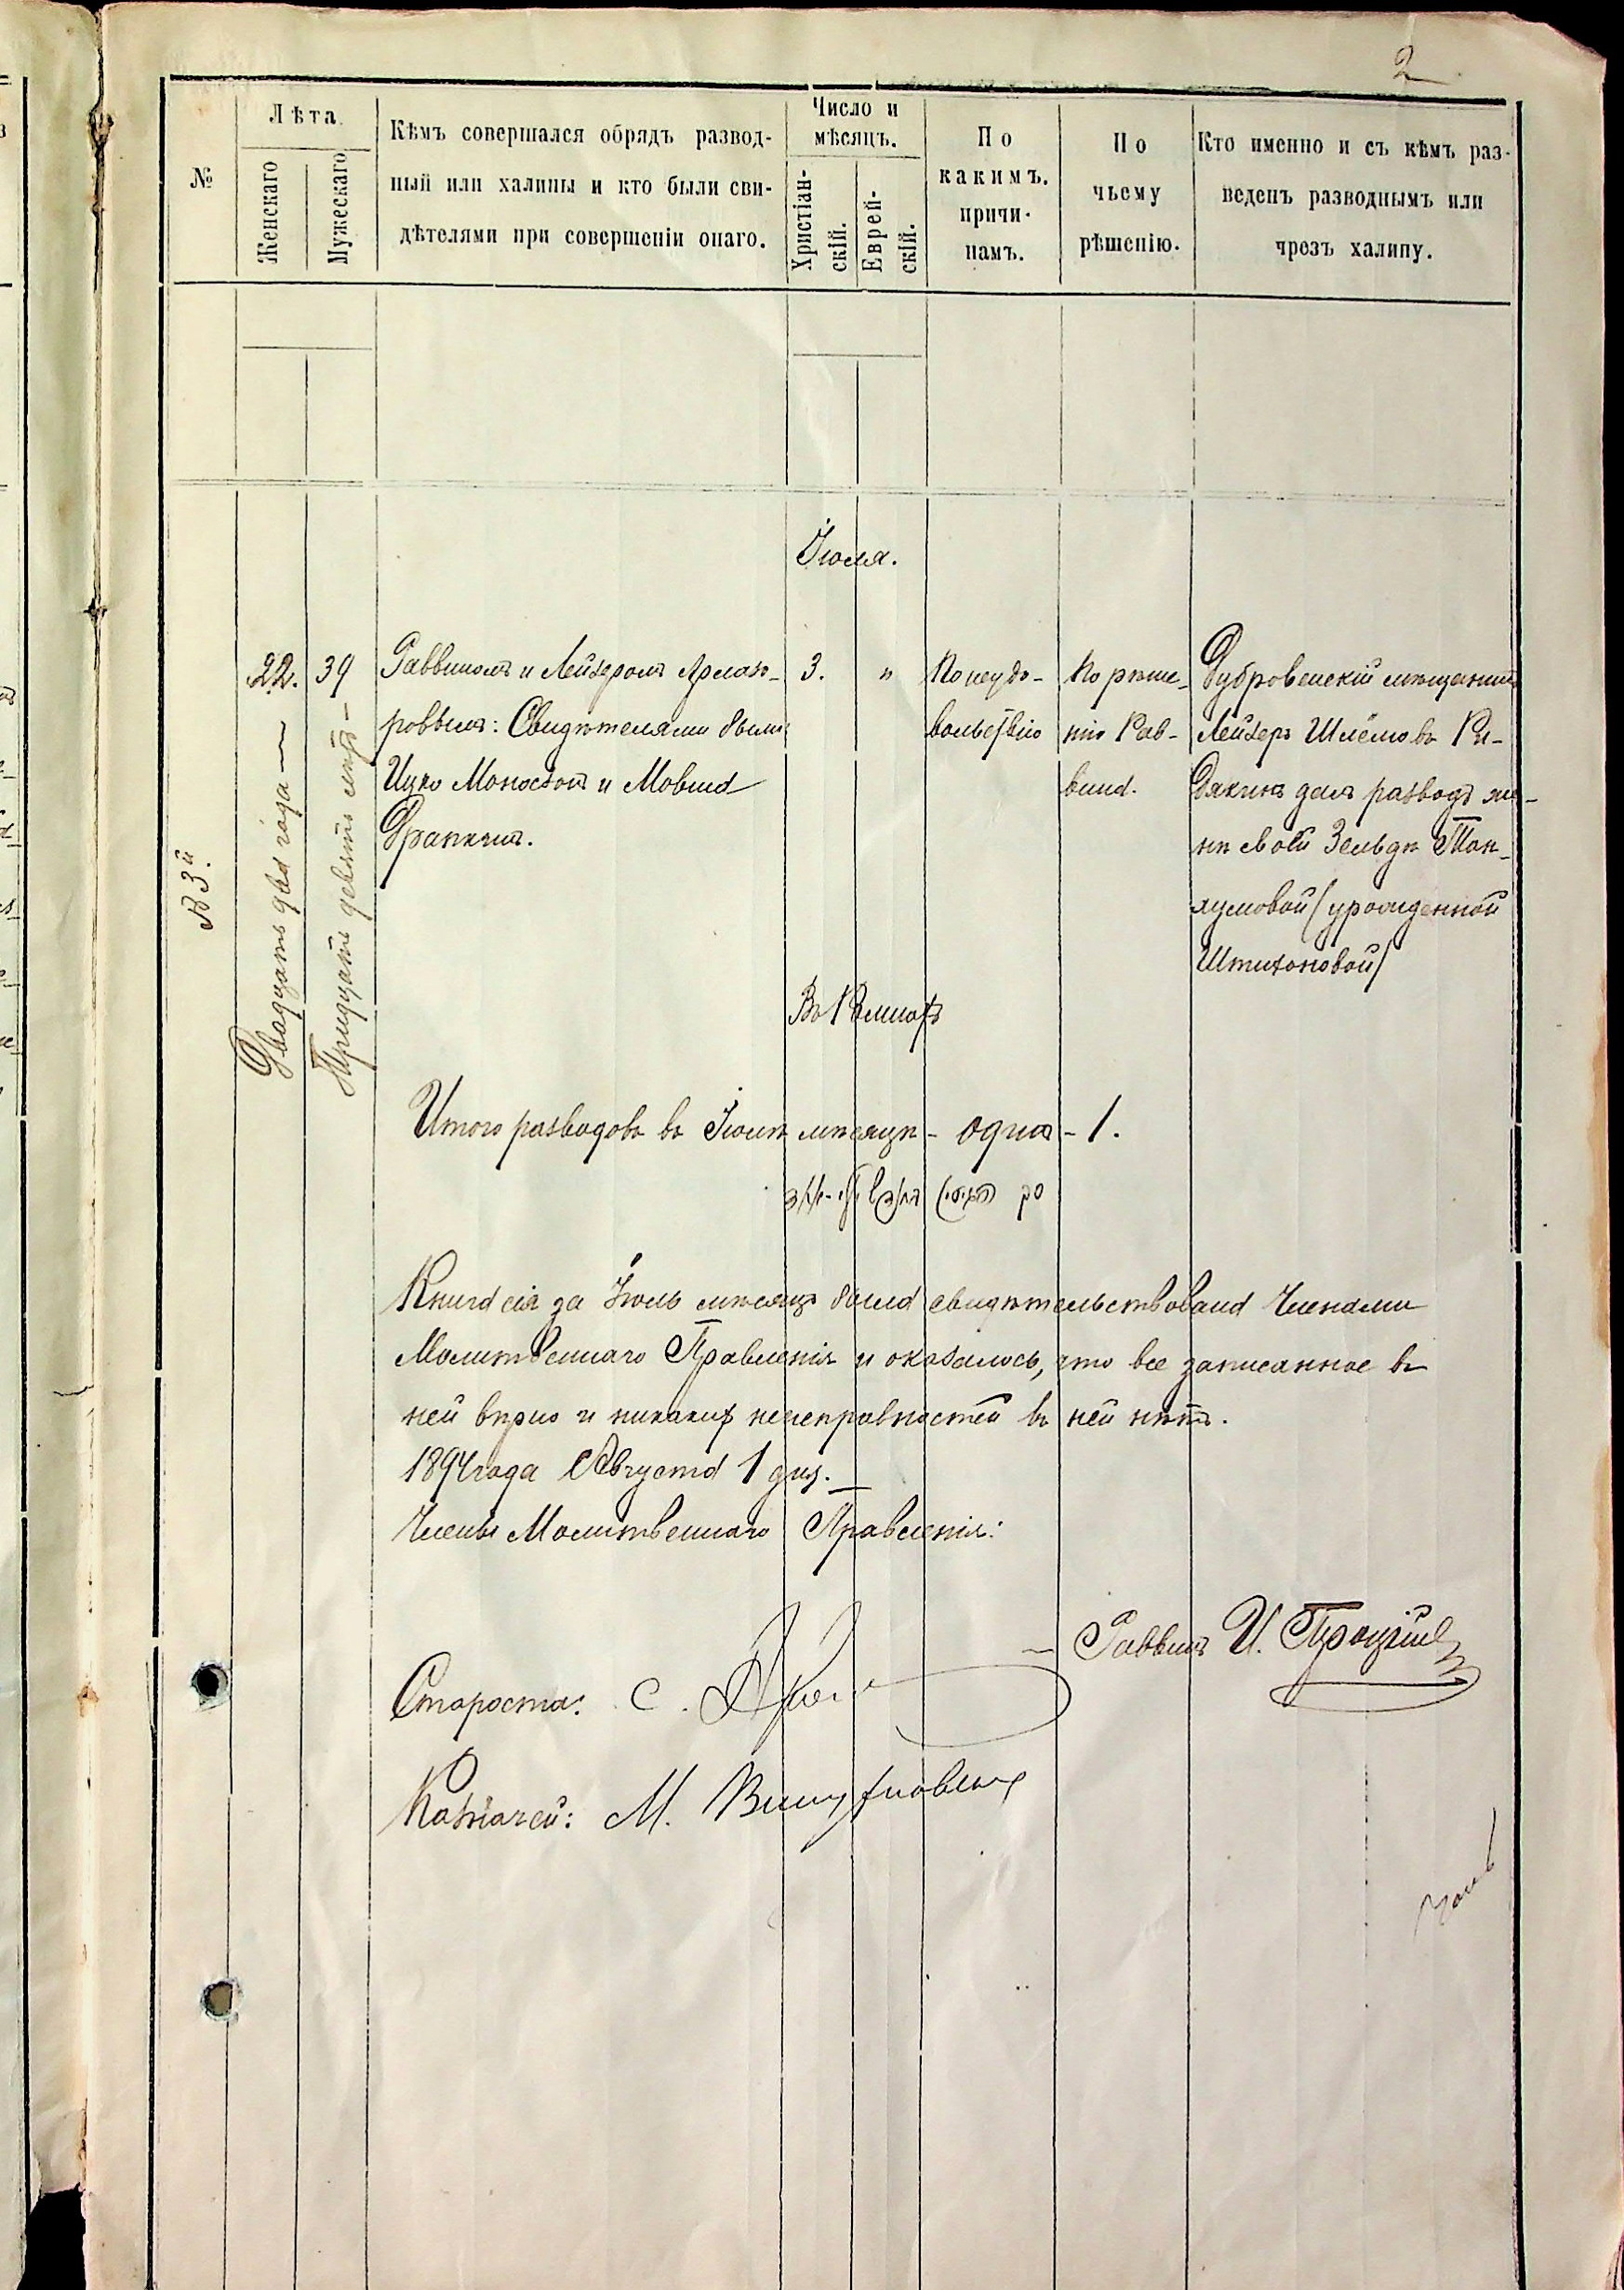 2
№
Лѣта
Женскаго
Мужескаго
Кѣмъ совершался обрядъ развод-
ный или халицы и кто были сви-
дѣтелями при совершеніи онаго.
Число и
мѣсяцъ.
Христіан-
скій.
Еврей-
скій.
По
какимъ
причи-
намъ.
По
чьему
рѣшенію.
Кто именно и съ кѣмъ раз-
веденъ разводнымъ или
чрезъ халицу.
Іюля.
22.
Двадцать два года
39
Тридцать девять лѣтъ
Раввиномъ и Лейзеромъ
Свидѣтелями были
Ицко и Мовша
3.
"
По неудо-
вольствію
По рѣше-
нію Рав-
вина.
Дубровенскій мѣщанинъ
Лейзеръ Шлёмовъ Ру-
дякинъ далъ разводъ же-
нѣ своей Зельдѣ Тан-
хумовой (урожденной
Въ
Итого разводовъ въ Іюлѣ мѣсяцѣ - одинъ - 1.
Книга сія за Іюль мѣсяцъ была свидѣтельствована Членами
Молитвеннаго Правленія и оказалось, что все записанное въ
ней вѣрно и никакихъ неисправностей въ ней нѣтъ.
1894 года Августа 1 дня.
Члены Молитвеннаго Правленія:
Раввинъ И.
Староста: С.
Казначей: М.